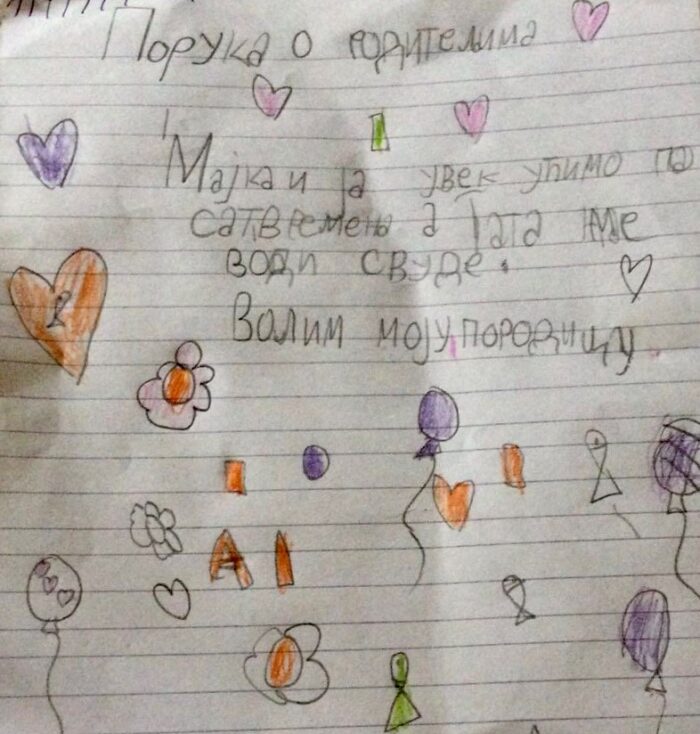 Порука о родителима
Мајка и ја увек учимо по
сат времена а Тата ме
води свуде.
Волим моју породицу.
AI